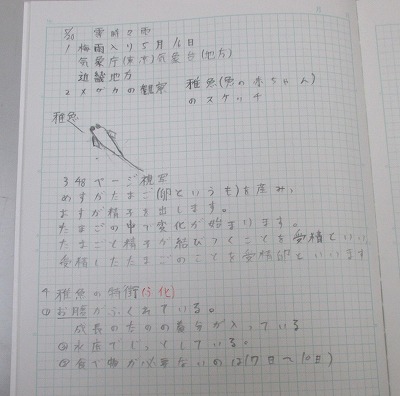 5/20 雷時々雨
1 梅雨入り5月16日
気象庁(東京)気象台(地方)
近畿地方
2 メダカの観察 稚魚(魚の赤ちゃん)
のスケッチ
稚魚
3 48ページ視写
めすがたまご(卵ともいう)を産み、
おすが精子を出します。
たまごの中で変化が始まります。
たまごと精子が結びつくことを受精といい
受精したたまごのことを受精卵といいます
4 稚魚の特徴(ふ化)
① お腹がふくれている。
成長のための養分が入っている
② 水底でじっとしている。
③ 食べ物が必要ないのは(7日〜10日)